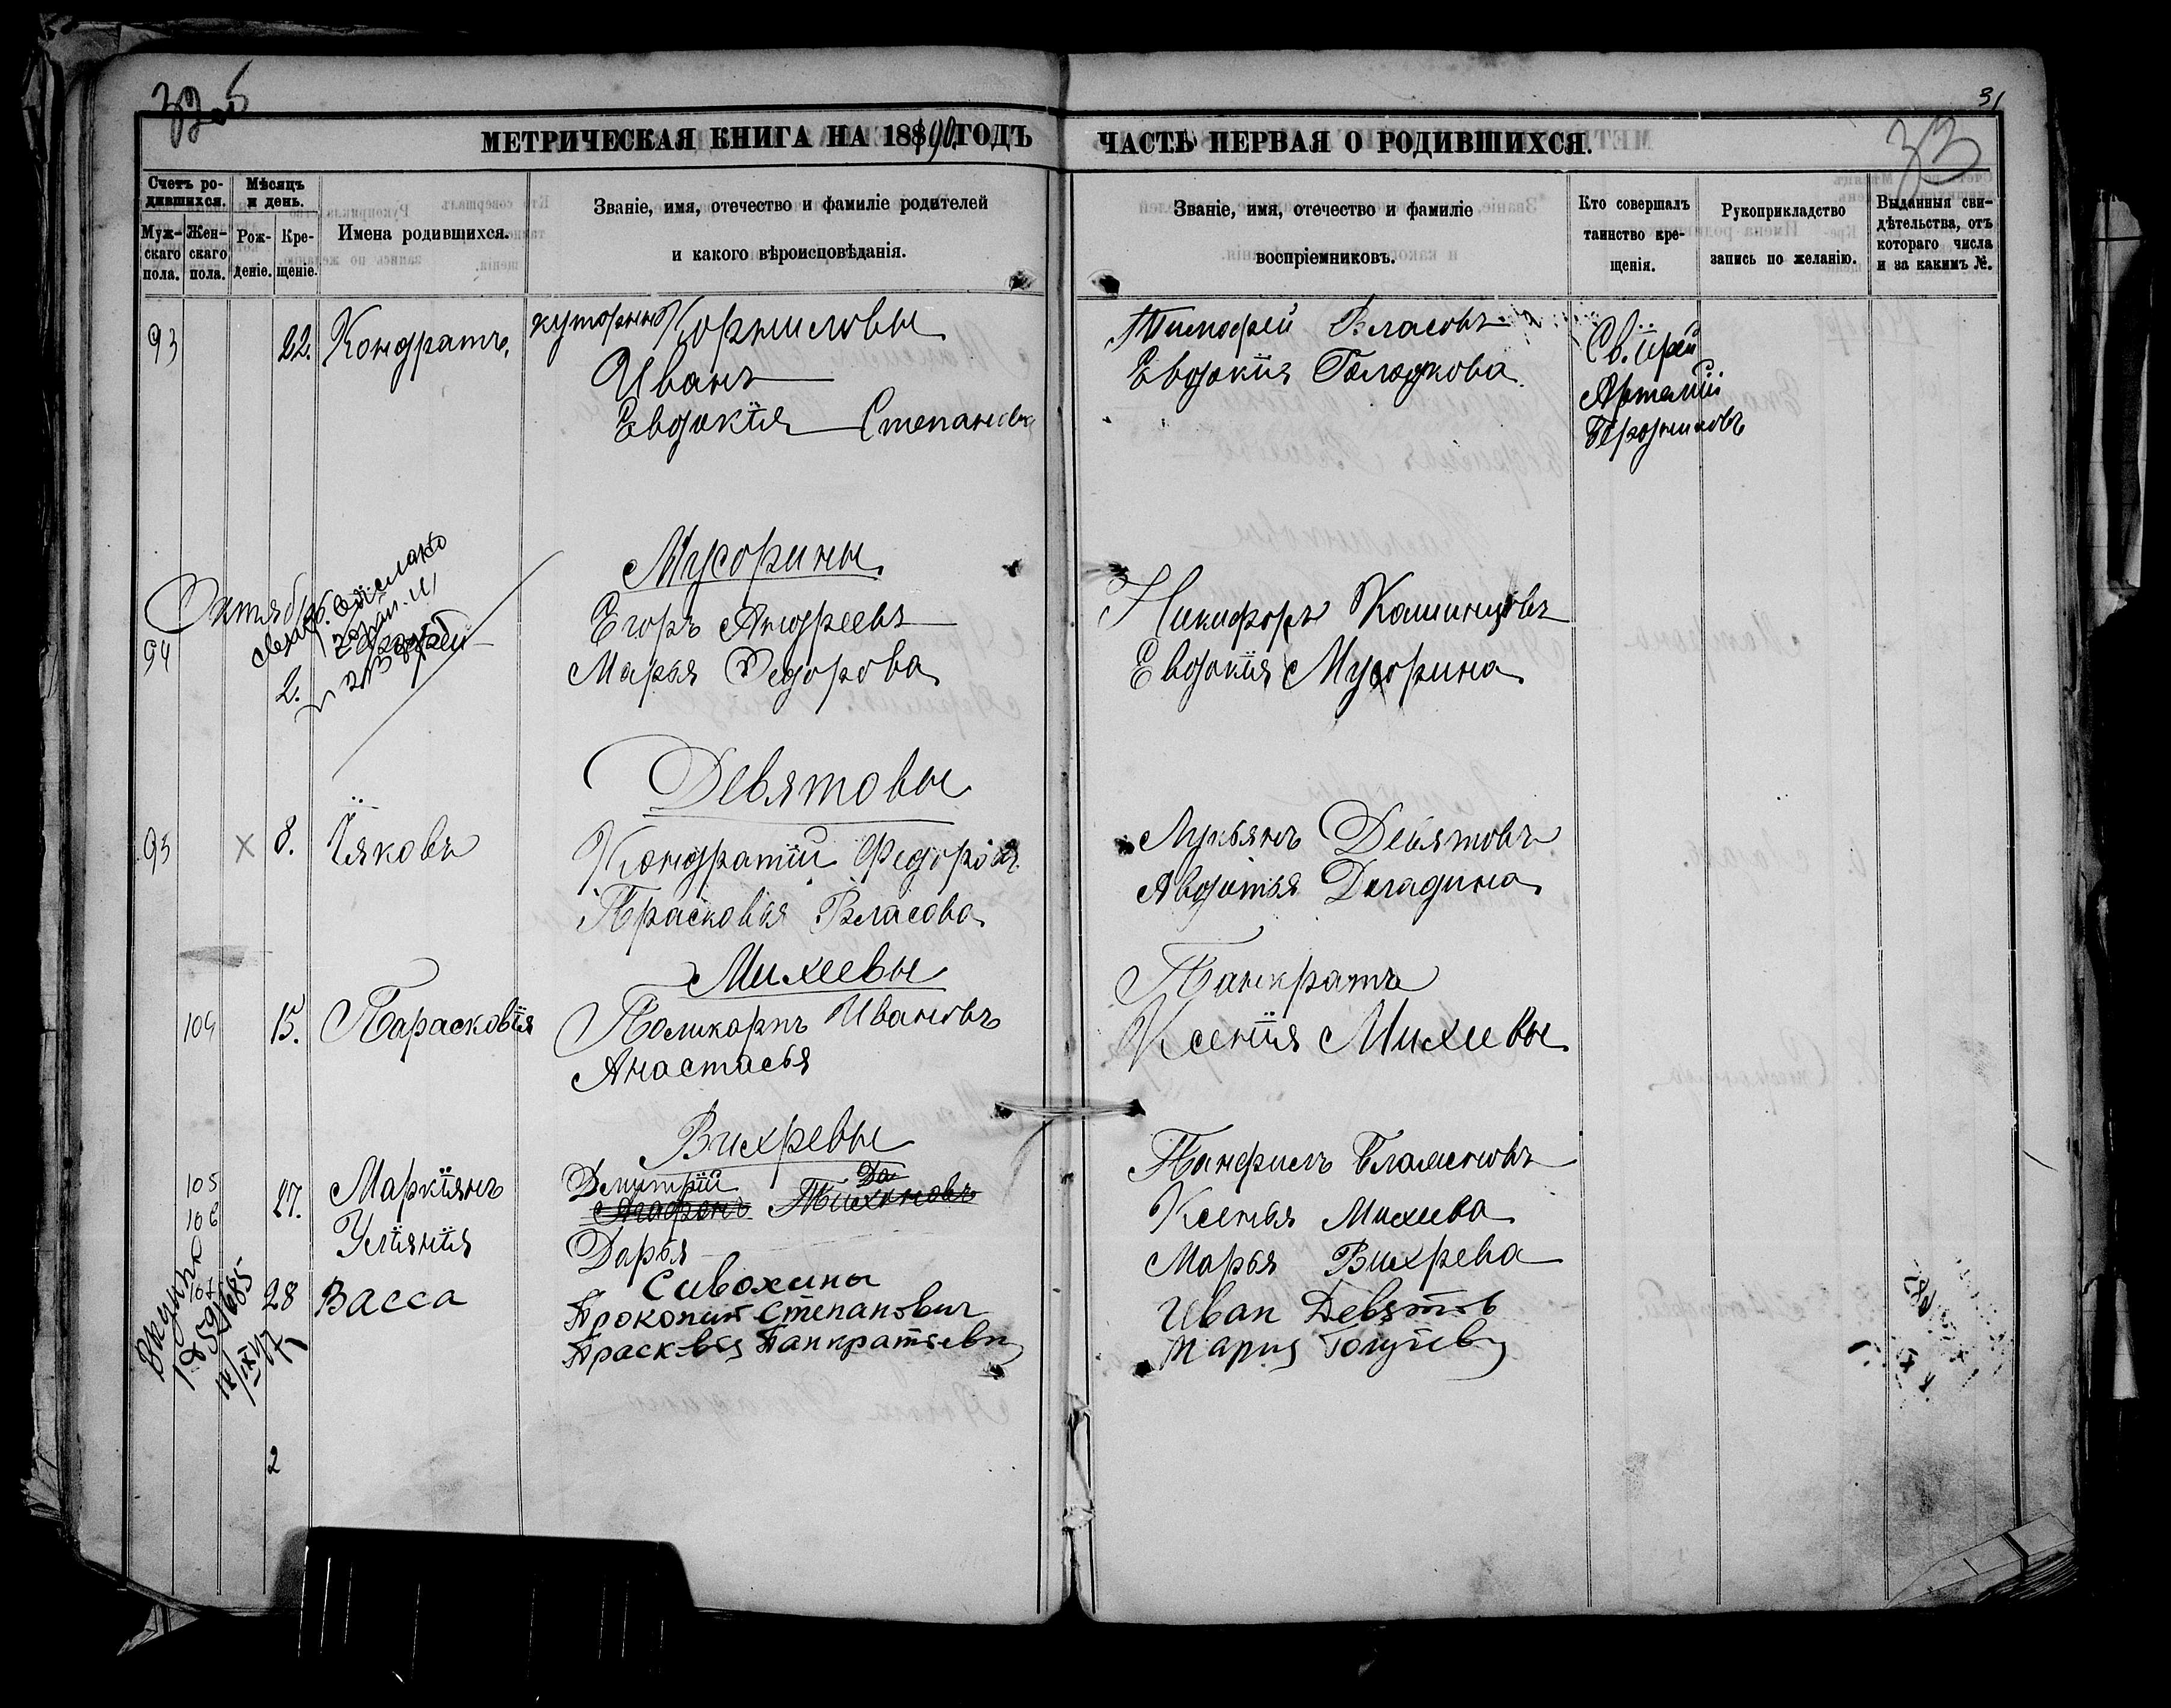 31
33
МЕТРИЧЕСКАЯ КНИГА НА 1890 ГОДЪ
ЧАСТЬ ПЕРВАЯ О РОДИВШИХСЯ.
Счетъ ро-
дившихся.
Муж-
скаго
пола.
Жен-
скаго
пола.
Мѣсяцъ
и день.
Рож-
деніе.
Кре-
щеніе.
Имена родившихся.
Званіе, имя, отечество и фамиліе родителей
и какого вѣроисповѣданія.
Званіе, имя, отечество и фамиліе
воспріемниковъ.
Кто совершалъ
таинство кре-
щенія.
Рукоприкладство
запись по желанію.
Выданныя сви-
дѣтельства, отъ
котораго числа
и за какимъ №.
93 22. Кондратъ,
Корниловы
Иванъ
Евдокія Степановна
Тимофей Власовъ
Евдокія Голодкова
Св. іерей
Артемій
Октябрь
94 2.
Мусорины
Егоръ Андреевъ
Марья Федорова
Никифоръ
Евдокія Мусорина
Девятовы
95 8. Іяковъ
Кондратій Федоровъ
Прасковья Власова
Лукьянъ Девятовъ
Авдотья Догадина
Михеевы
104 15. Парасковія
Поликарпъ Ивановъ
Анастасья
Панкратъ
Ксенія Михеевы
Вихревы
105 27. Маркіянъ
106 Уліянія
Дмитрій
Агафонъ Тихоновъ
Дарья
Панфилъ
Ксенья Михева
Марья Вихрева
107 28 Васса
Сивохины
Прокопий Степанович
Прасковья Панкратьевна
Иван Девятов
Мария
2